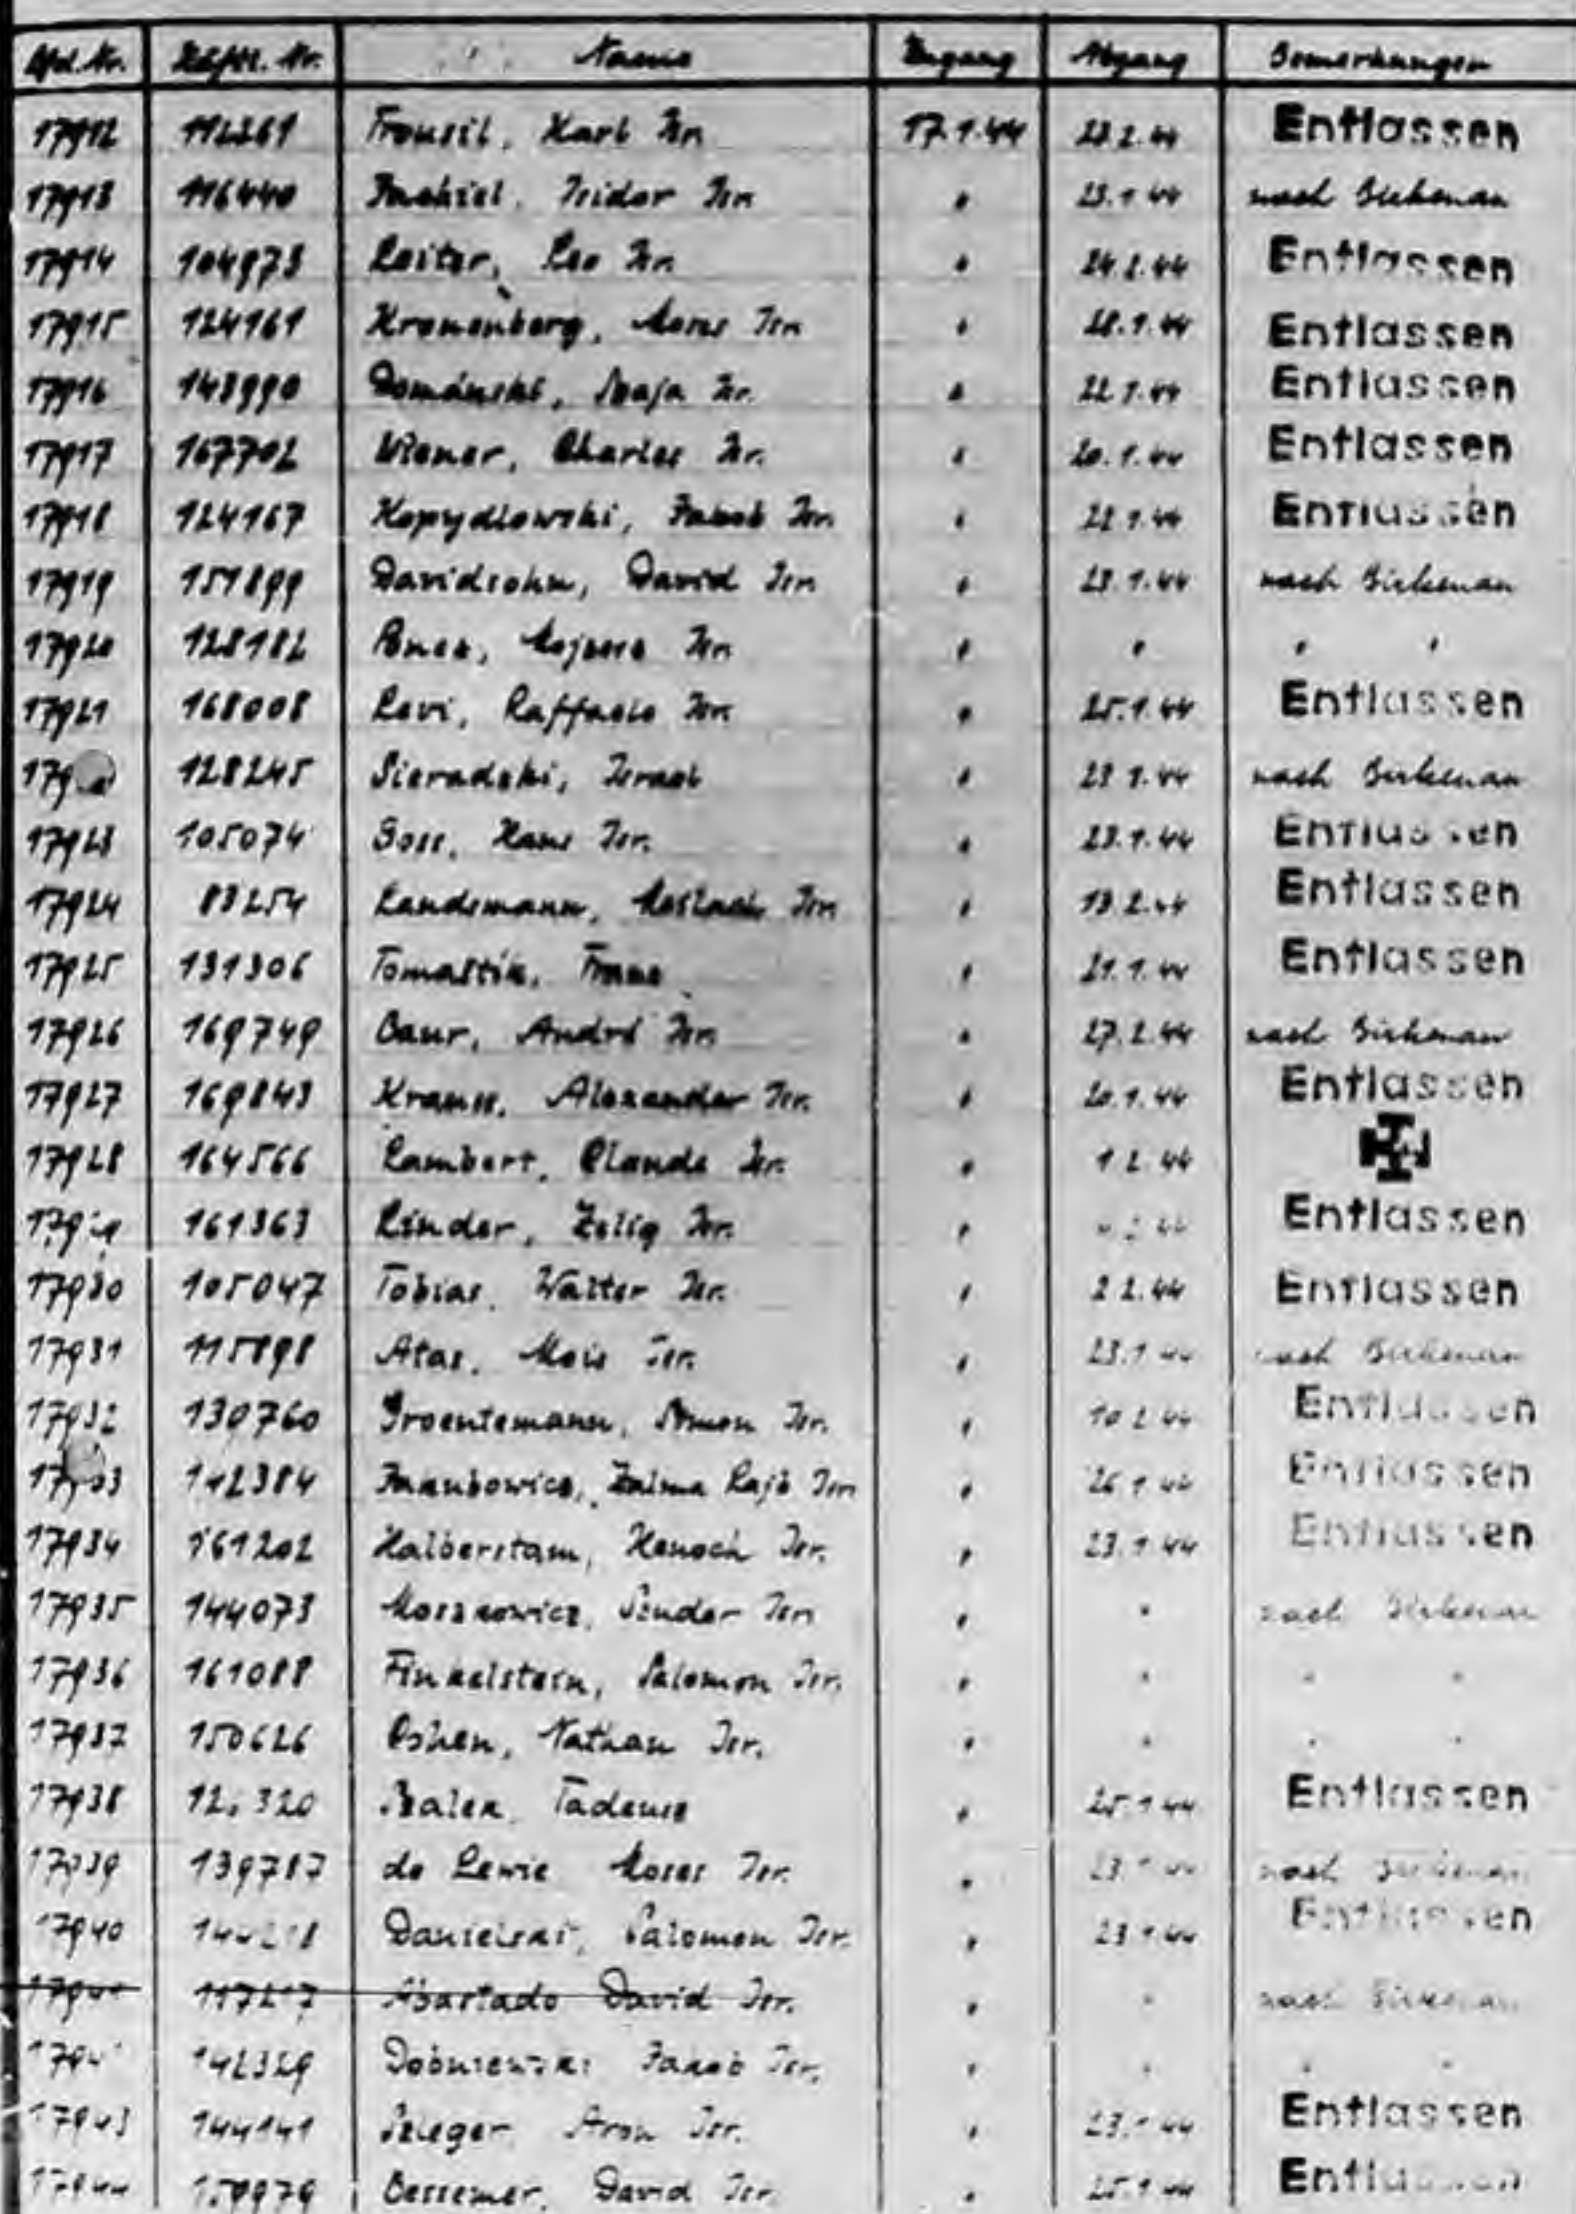 Lfd. Nr. Häftl. Nr. Name Zugang Abgang Bemerkungen
17912 112261 Karl Isr. 17.1.44 23.2.44 Entlassen
17913 116440 Isidor Isr. " 23.1.44 nach Birkenau
17914 104973 Reiter, Leo Isr. " 24.2.44 Entlassen
17915 124161 Kronenberg, Moses Isr. " 28.1.44 Entlassen
17916 143990 Szaja Isr. " 22.1.44 Entlassen
17917 167702 Wiener, Charles Isr. " 20.1.44 Entlassen
17918 124167 Kopydlowski, Jakob Isr. " 22.1.44 Entlassen
17919 151899 Davidsohn, David Isr. " 23.1.44 nach Birkenau
17920 128182 Isr. " " " "
17921 168008 Levi, Raffaele Isr. " 25.1.44 Entlassen
128245 Sieradzki, Israel " 23.1.44 nach Birkenau
17923 105074 Hans Isr. " 23.1.44 Entlassen
17924 83254 Landsmann, Isr. " 13.2.44 Entlassen
17925 131306 Tomastik, Franz " 21.1.44 Entlassen
17926 169749 André Isr. " 27.2.44 nach Birkenau
17927 169843 Krauss, Alexander Isr. " 20.1.44 Entlassen
17928 164566 Lambert, Claude Isr. " 1.2.44
161363 Linder, Zelig Isr. " Entlassen
17930 105047 Tobias, Walter Isr. " 2.2.44 Entlassen
17931 115898 Atas, Mois Isr. " 23.1.44 nach Birkenau
17932 130760 Groentemann, Simon Isr. " 10.2.44 Entlassen
142384 Isr. " 26.1.44 Entlassen
17934 161202 Halberstam, Henoch Isr. " 23.1.44 Entlassen
17935 144073 Moszkowicz, Szuder Isr. " " nach Birkenau
17936 161088 Finkelstein, Salomon Isr. " " " "
17937 150626 Nathan Isr. " " " "
17938 Tadeusz " 25.1.44 Entlassen
17939 139787 de Lewie Moses Isr. " 23.1.44 nach Birkenau
17940 Danielski, Salomon Isr. " 23.1.44 Entlassen
David Isr. " " nach Birkenau
142329 Jakob Isr. " " " "
17943 144141 Aron Isr. " 23.1.44 Entlassen
17944 Bessemer, David Isr. " 25.1.44 Entlassen